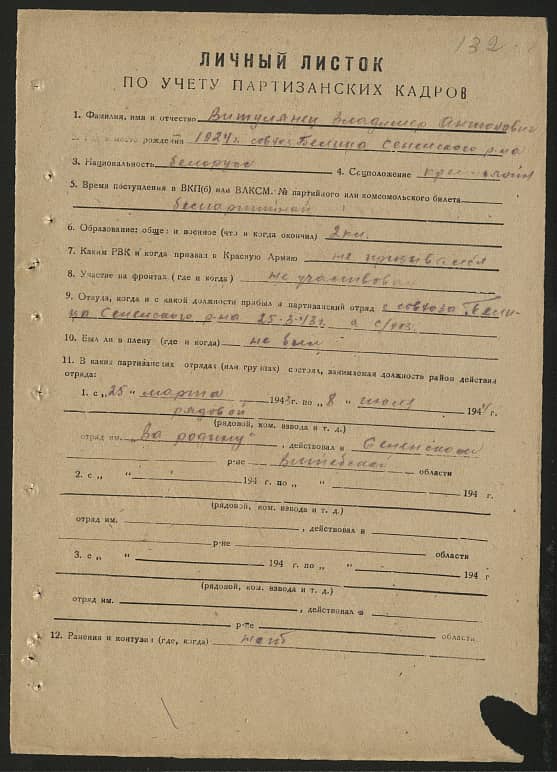 132
ЛИЧНЫЙ ЛИСТОК
ПО УЧЕТУ ПАРТИЗАНСКИХ КАДРОВ
1. Фамилия, имя и отчество Витулянец Владимир Антонович
место рождения 1924 г. совхоз Белица Сенненского р-на
3. Национальность белорусс 4. Соцположение
5. Время поступления в ВКП(б) или ВЛКСМ. № партийного или комсомольского билета
беспартийный
6. Образование: общее и военное (что и когда окончил) 2 кл.
7. Каким РВК и когда призван в Красную Армию не призывался
8. Участие на фронтах (где и когда) не участвовал
9. Откуда, когда и с какой должности прибыл в партизанский отряд с совхоза Бели-
ца Сенненского р-на 25-3-43 г.
10. Был ли в плену (где и когда) не был
11. В каких партизанских отрядах (или группах) состоял, занимаемая должность район действия
отряда:
1. с „25 " марта 1943 г. по „ 8 " июля 1944 г.
рядовой
(рядовой, ком. взвода и т. д.)
отряд им. "За родину" , действовал в Сенненском
р-не Витебской области
2. с „ " 194 г. по „ " 194 г.
(рядовой, ком. взвода и т. д.)
отряд им. , действовал в
р-не области
3. с „ " 194 г. по „ " 194 г
(рядовой, ком. взвода и т. д.)
отряд им. , действовал в
р-не области
12. Ранения и контузии (где, когда) нет